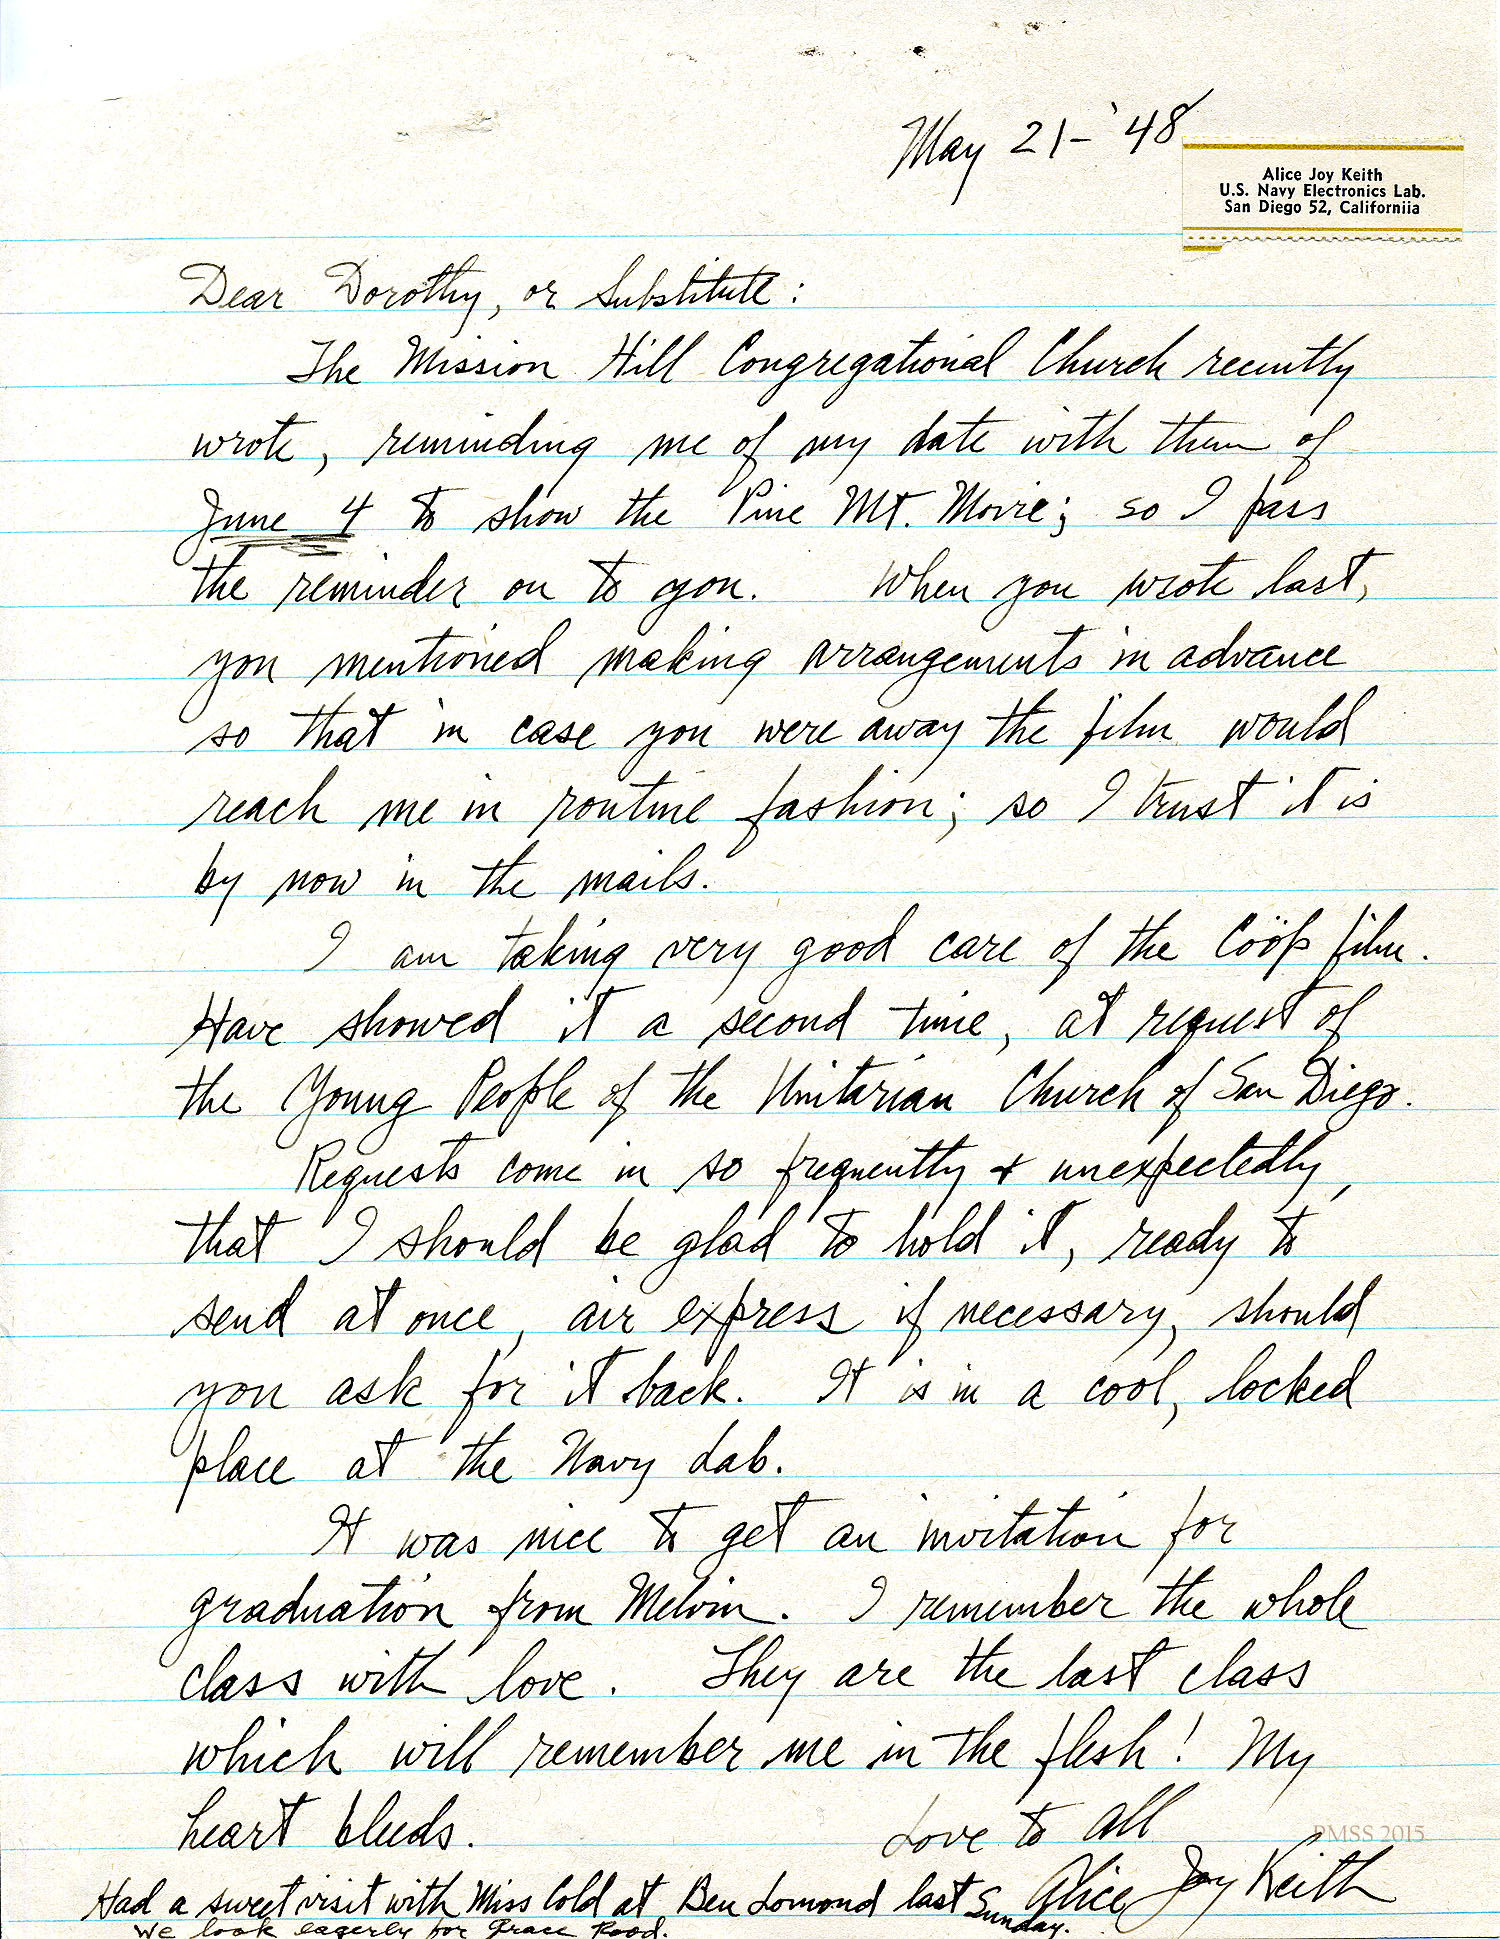 May 21 - '48
Alice Joy Keith
U.S. Navy Electronics Lab.
San Diego 52, Californiia
Dear Dorothy, or Substitute:
The Mission Hill Congregational Church recently
wrote, reminding me of my date with them of
June 4 to show the Pine Mt. Movie; so I pass
the reminder on to you. When you wrote last,
you mentioned making arrangements in advance
so that in case you were away the film would
reach me in routine fashion; so I trust it is
by now in the mails.
I am taking very good care of the Coöp film.
Have showed it a second time, at request of
the Young People of the Unitarian Church of San Diego.
Requests come in so frequently & unexpectedly,
that I should be glad to hold it, ready to
send at once, air express if necessary, should
you ask for it back. It is in a cool, locked
place at the Navy Lab.
It was nice to get an invitation for
graduation from Melvin. I remember the whole
class with love. They are the last class
which will remember me in the flesh! My
heart bleeds.
Love to all
PMSS 2015
Alice Joy Keith
Had a sweet visit with Miss Cold at Ben Lomond last Sunday.
We look eagerly for Grace Rood.